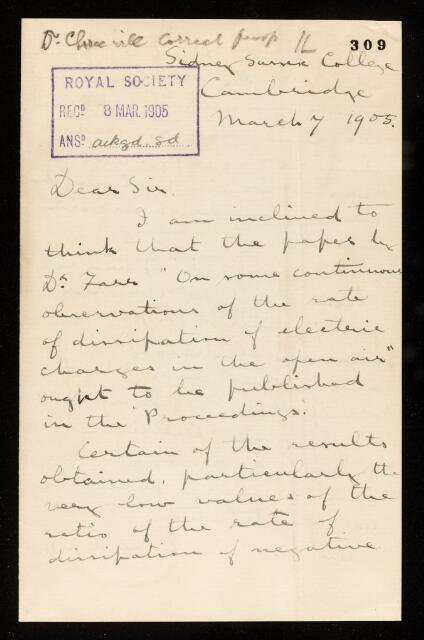 Dr Chree will correct proof IL
309
Sidney Sussex College
Cambridge
March 7 1905.
ROYAL SOCIETY
RECD. 8 MAR. 1905
ANSD. ackgd sd
Dear Sir
I am inclined to
think that the paper by
Dr Farr "On some continuous
observations of the rate
of dissipation of electric
charges in the open air"
ought to be published
in the 'Proceedings'.
Certain of the results
obtained, particularly the
very low values of the
ratio of the rate of
dissipation of negative